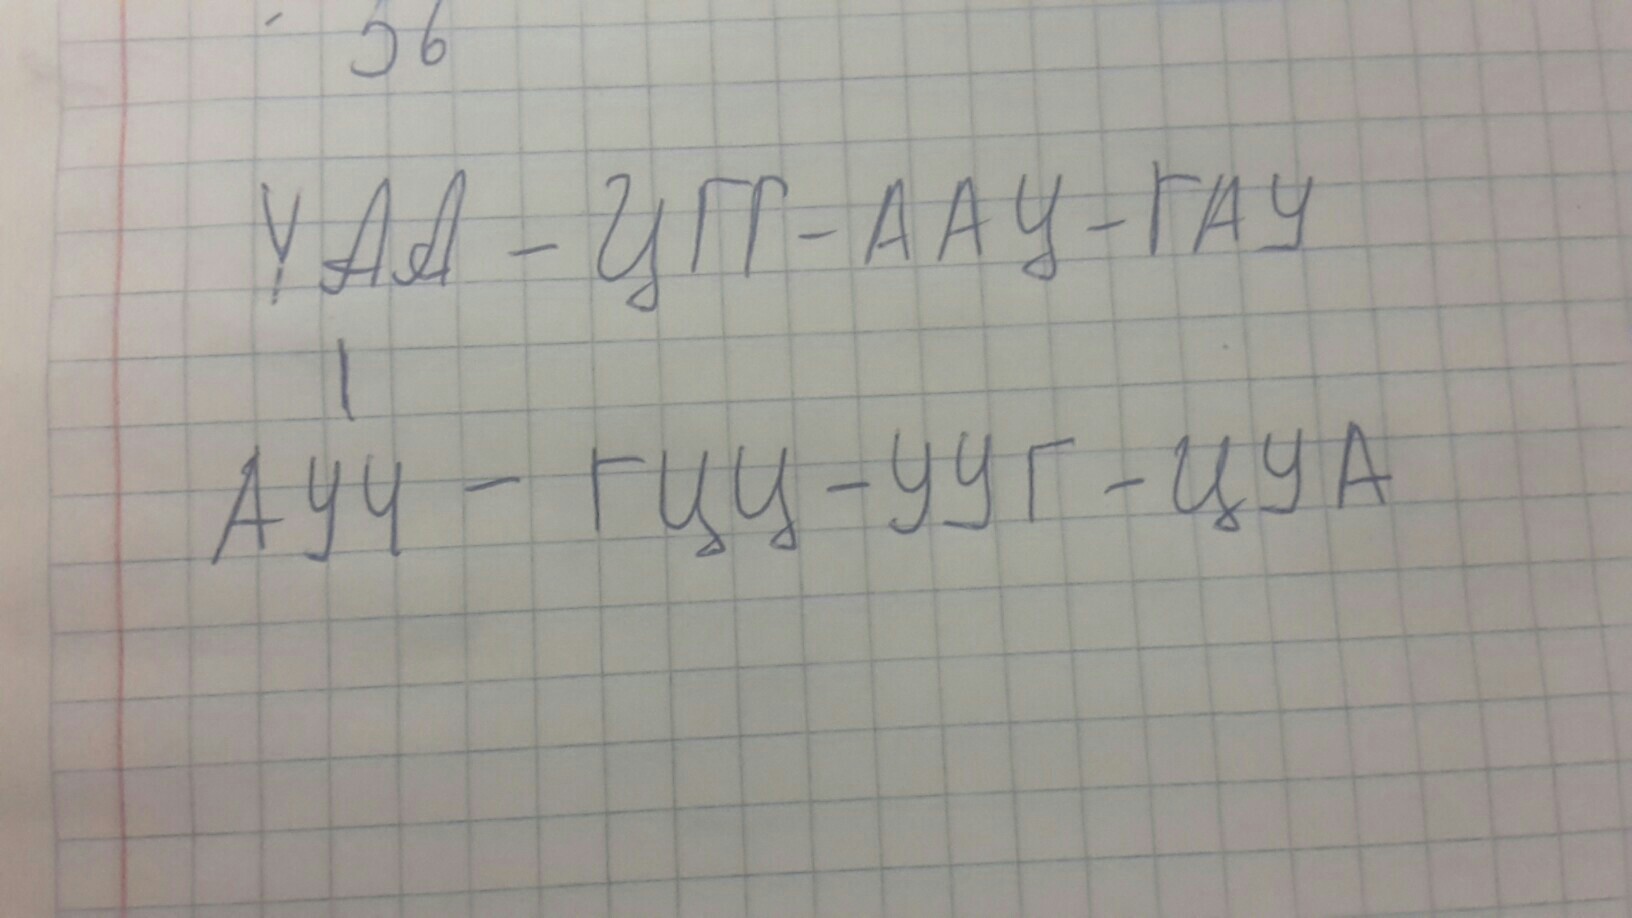 56
УАА - ЦГГ - ААУ - ГАУ
АУУ - ГЦЦ - УУГ - ЦУА